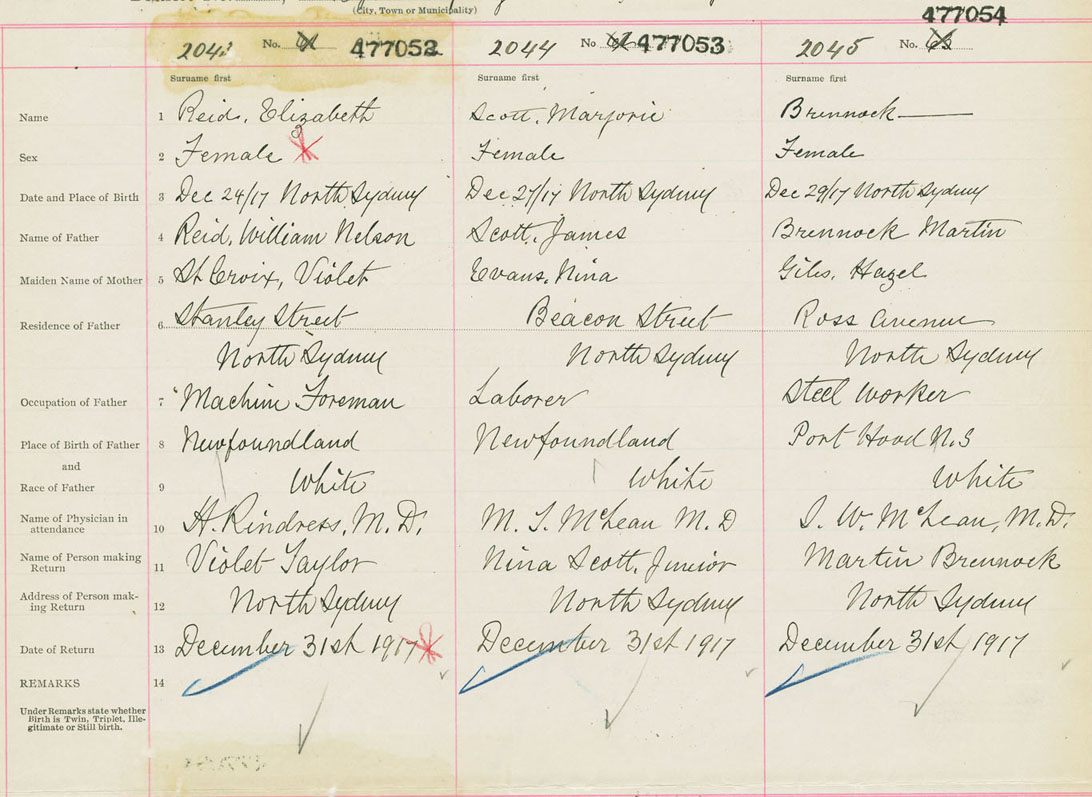 (City, Town or Municipality)
477054
204 No. 61 477052 2044 No. 62 477053 2045 No. 63
Surname first Surname first Surname first
Name 1 Reid, Elizabeth Scott, Marjorie Brennock
Sex 2 Female Female Female
Date and Place of Birth 3 Dec 24/17 North Sydney Dec 27/17 North Sydney Dec 29/17 North Sydney
Name of Father 4 Reid, William Nelson Scott, James Brennock Martin
Maiden Name of Mother 5 St Croix, Violet Evans, Nina Giles, Hazel
Residence of Father 6 Stanley Street Beacon Street Ross Avenue
North Sydney North Sydney North Sydney
Occupation of Father 7 Machine Foreman Laborer Steel Worker
Place of Birth of Father 8 Newfoundland Newfoundland Port Hood N.S
and
Race of Father 9 White White White
Name of Physician in
attendance 10 H. Rindress, M.D. M. T. McLean M.D J. W. McLean, M.D.
Name of Person making
Return 11 Violet Taylor Nina Scott, Junior Martin Brennock
Address of Person mak-
ing Return 12 North Sydney North Sydney North Sydney
Date of Return 13 December 31st 1917 December 31st 1917 December 31st 1917
REMARKS 14
Under Remarks state whether
Birth is Twin, Triplet, Ille-
gitimate or Still birth.